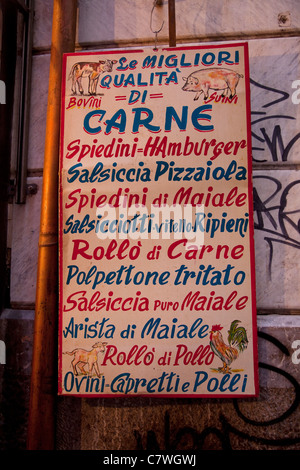 Le MIGLIORI
QUALITÀ
BOVINI = DI = SUINI
CARNE
Spiedini-HAmburger
Salsiccia Pizzaiola
Spiedini di Maiale
Salsicciotti vitello Ripieni
Rollò di Carne
Polpettone tritato
Salsiccia PURO Maiale
Arista di Maiale
Rollò di Pollo
Ovini-Capretti e Polli
a
alamy
Image ID: C7WGWJ
www.alamy.com